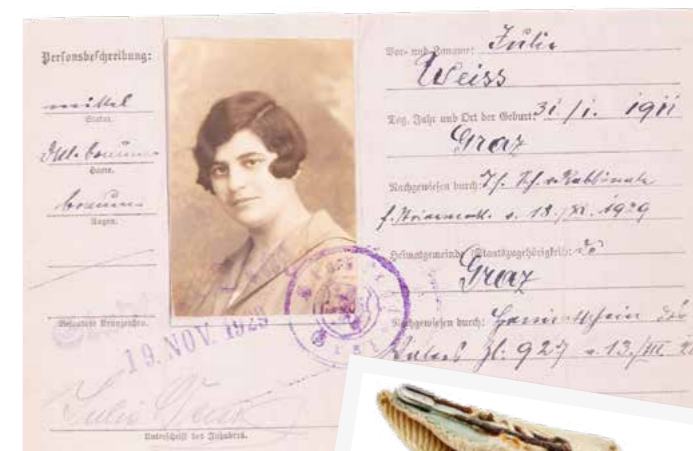 Personsbeschreibung:
mittel
Statur.
dkl. braun
Haare.
braun
Augen.
Besondere Kennzeichen.
19. NOV. 1929
Julie Weiss
Unterschrift des Inhabers.
Vor- und Zuname: Julie
Weiss
Tag, Jahr und Ort der Geburt: 31/1. 1911
Graz
Nachgewiesen durch: Rabbinats
f. Steiermark. v. 18./XI. 1929
Heimatgemeinde (Staatszugehörigkeit):
Graz
Nachgewiesen durch: Heimatschein des
Vaters Zl: 927 v. 13./III.